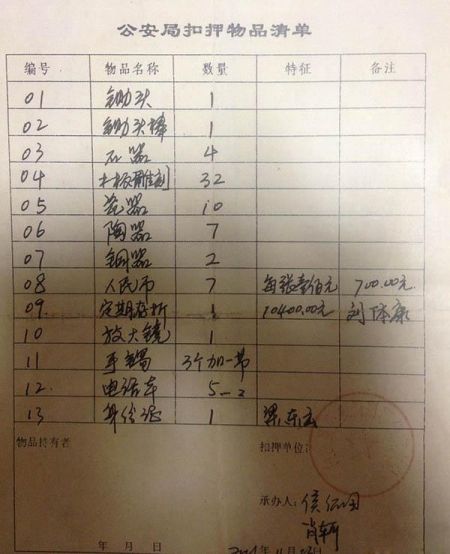 公安局扣押物品清单
编号 物品名称 数量 特征 备注
01 锄头 1
02 锄头棒 1
03 石器 4
04 32
05 瓷器 10
06 陶器 7
07 铜器 2
08 人民币 7 每张壹佰元 700.00元
09. 定期存折 1 10400.00元 刘体康
10 放大镜 1
11 手镯 3个加一节
12. 电话本
13 身份证 1 梁东云
物品持有者 扣押单位:
承办人:
年 月 日 年 月 日